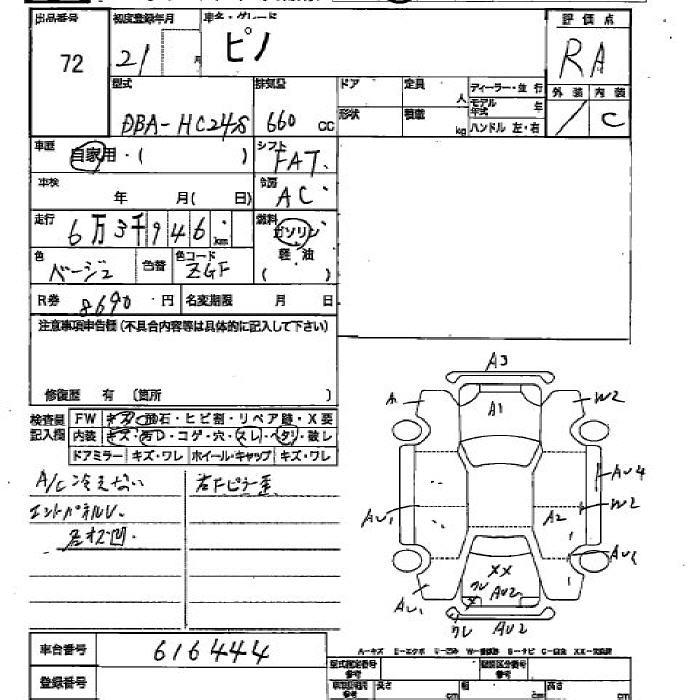 出品番号 初度登録年月 車名・グレード 評価点
72 21 月 ピノ RA
型式 排気量 ドア 定員 人 ディーラー・並行 外装 内装
DBA-HC24S 660 cc 形状 積載 kg モデル年式 年 / C
ハンドル 左・右
車歴 自家用・( ) シフト FAT
車検 年 月( 日) 冷房 AC
走行 6万3千946 km 燃料 ガソリン
軽油
( )
色 ベージュ 色替 色コード ZGF
R券 8690円 名変期限 月 日
注意事項申告欄(不具合内容等は具体的に記入して下さい)
修復歴 有 (箇所 )
検査員 FW キズ・飛石・ヒビ割・リペア跡・X要
記入欄 内装 キズ・汚レ・コゲ・穴・スレ・ヘタリ・破レ
ドアミラー キズ・ワレ ホイール・キャップ キズ・ワレ
A/C冷えない 右Fピラー歪
エンドパネルU
A3
A A1 W2
AU4
W2
AU1 A2
XX
ワレ AU2
AU1
ワレ AU2
車台番号 616444
登録番号
A-キズ E-エクボ U-凹み W-補修跡 S-サビ C-腐食 XX-交換済
型式指定番号 参考 類別区分番号 参考
参考 長さ cm 幅 cm 高さ cm